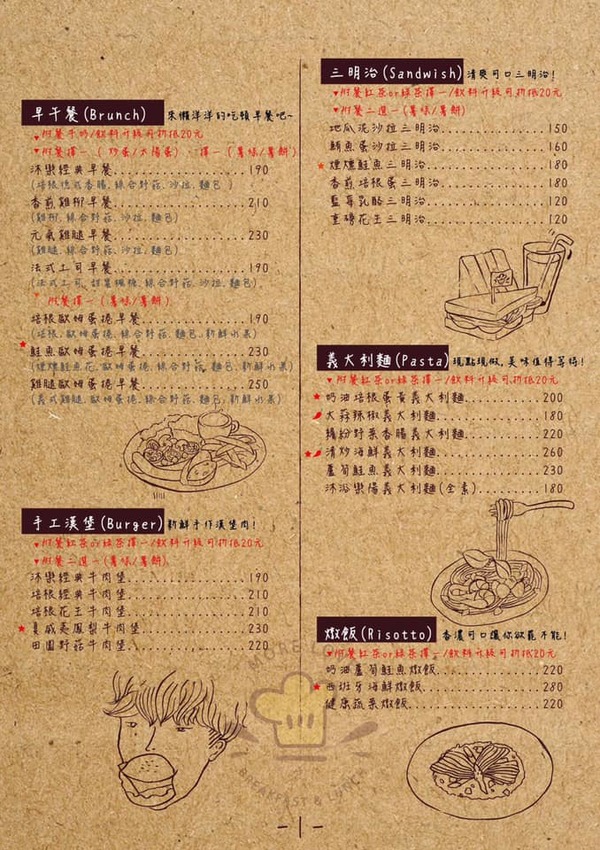 早午餐(Brunch) 來懶洋洋的吃頓早餐吧~
♥附餐牛奶/飲料升級可折抵20元
♥附餐擇一(炒蛋/太陽蛋)、擇一(薯味/薯餅)
沐樂經典早餐....................190
(培根德式香腸,綜合野菇,沙拉,麵包)
香煎雞柳早餐....................210
(雞柳,綜合野菇,沙拉,麵包)
元氣雞腿早餐....................230
(雞腿,綜合野菇,沙拉,麵包)
法式土司早餐....................190
(法式土司,綜合野菇,沙拉,麵包)
♥附餐擇一(薯味/薯餅)
培根歐姆蛋捲早餐................190
(培根,歐姆蛋捲,綜合野菇,麵包,新鮮水果)
★鮭魚歐姆蛋捲早餐................230
(燻鮭鮭魚花,歐姆蛋捲,綜合野菇,麵包,新鮮水果)
雞腿歐姆蛋捲早餐................250
(義式雞腿,歐姆蛋捲,綜合野菇,麵包,新鮮水果)
手工漢堡(Burger) 新鮮手作漢堡肉!
♥附餐紅茶or綠茶擇一/飲料升級可折抵20元
♥附餐二選一(薯味/薯餅)
沐樂經典牛肉堡..................190
培根經典牛肉堡..................210
培根花王牛肉堡..................210
★夏威夷鳳梨牛肉堡................230
田園野菇牛肉堡..................220
三明治(Sandwish) 清爽可口三明治!
♥附餐紅茶or綠茶擇一/飲料升級可折抵20元
♥附餐二選一(薯味/薯餅)
地瓜泥沙拉三明治................150
鮪魚蛋沙拉三明治................160
★煙燻鮭魚三明治..................180
香煎培根蛋三明治................180
藍莓乳酪三明治..................120
重磅花王三明治..................120
義大利麵(Pasta) 現點現做,美味值得等待!
♥附餐紅茶or綠茶擇一/飲料升級可折抵20元
★奶油培根蛋黃義大利麵............200
大蒜辣椒義大利麵................180
繽紛野菜香腸義大利麵............220
★清炒海鮮義大利麵................260
蘆筍鮭魚義大利麵................230
沐浴樂陽義大利麵(全素)..........180
燉飯(Risotto) 香濃可口讓你欲罷不能!
♥附餐紅茶or綠茶擇一/飲料升級可折抵20元
奶油蘆筍鮭魚燉飯................220
★西班牙海鮮燉飯..................280
健康蔬菜燉飯....................220
MORE
BREAKFAST & LUNCH
- 1 -